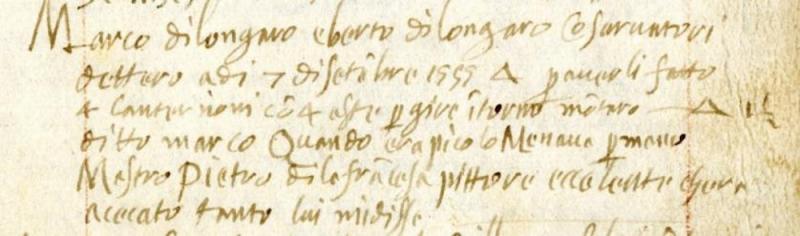 Marco di longaro e berto di longaro Cōsarvatori
dettero adi 7 di setēbre 1555 Δ p averli fatto
4 lanternoni cō 4 aste p gire ītorno
ditto marco Quando era picolo Menava p mano
Mastro Pietro di la frācesca pittore eccelente che era
acecato tanto lui mi disse